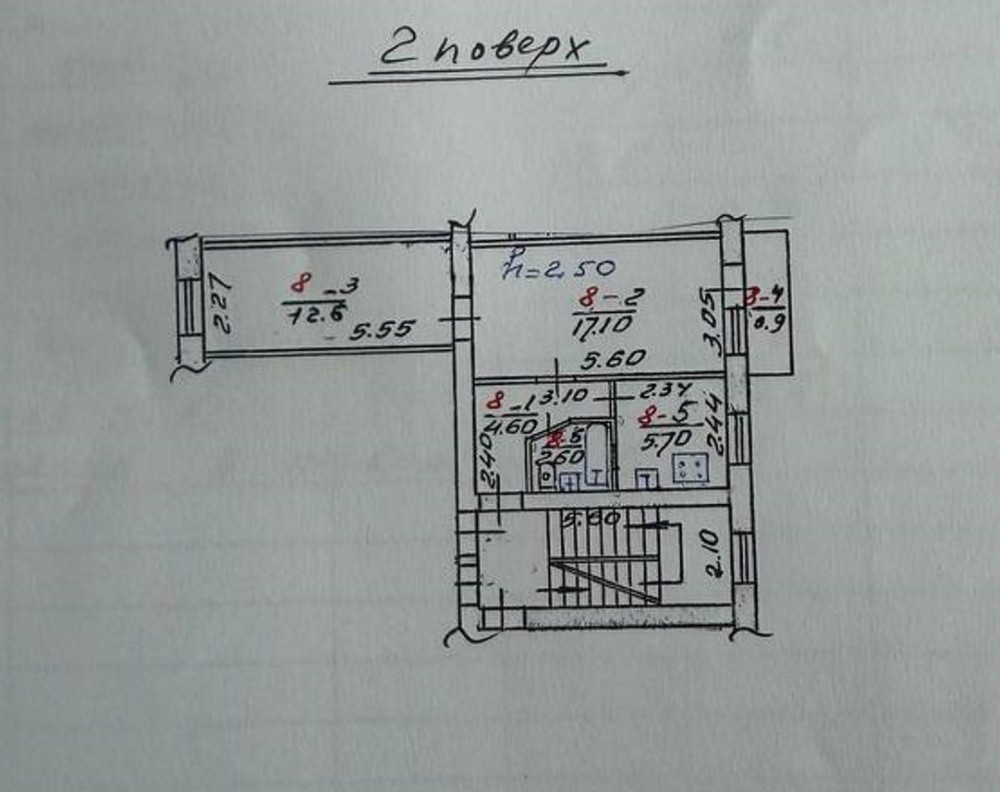 2 поверх
h=2,50
8-3
12.6
2.27
5.55
8-2
17.10
5.60
3.05
8-4
0.9
8-1
4.60
3.10
2.40
8-6
2.60
2.34
8-5
5.70
2.44
5.60
2.10